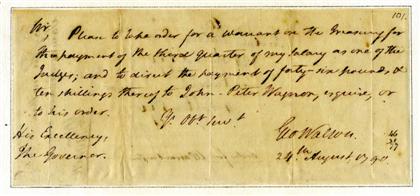 101.
Sir,
Please to take order for a Warrant on the Treasury for
the payment of the third Quarter of my Salary as one of the
Judges; and to direct the payment of forty-six pounds, &
ten shillings thereof to John Peter Wagnon, esquire, or
to his order.
Yr. Obt. Servt.
Geo Walton
His Excellency,
The Governor.
24th August 1790